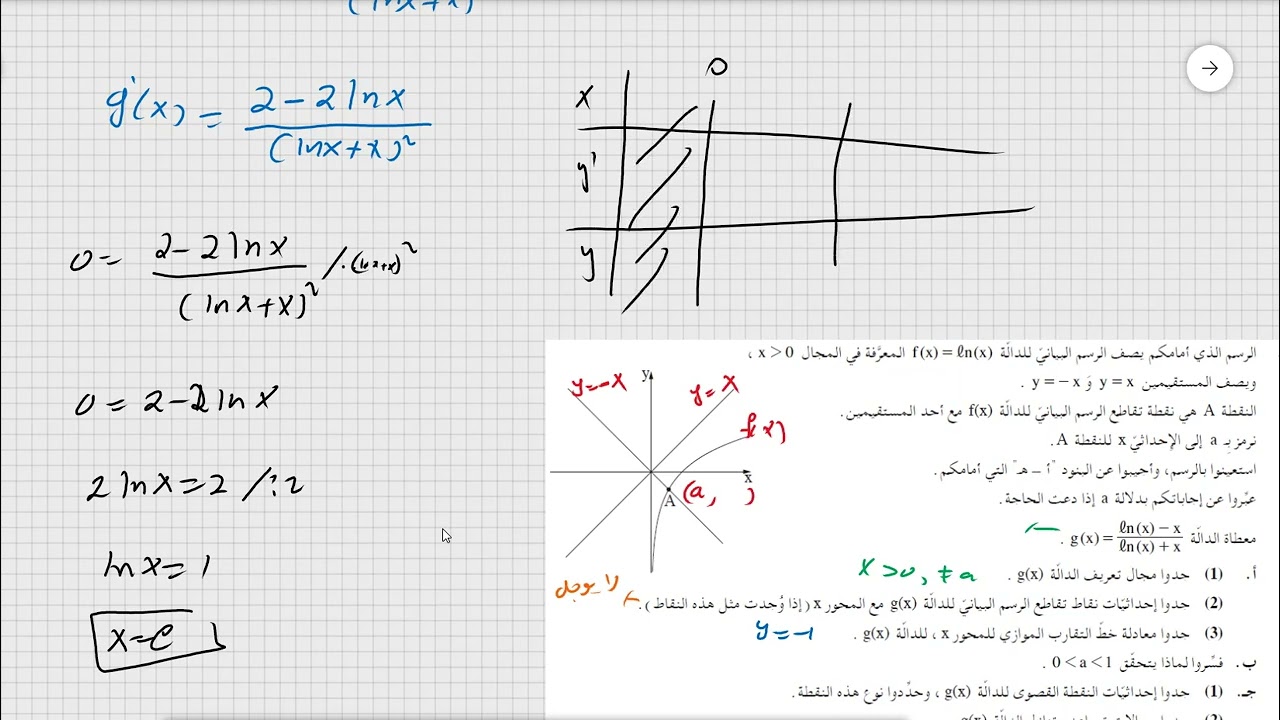 g'(x) = 2-2lnx / (lnx+x)²
0= 2-2lnx / (lnx+x)² /·(lnx+x)²
0 = 2-2lnx
2lnx=2 /:2
lnx=1
x=e
0
x
y'
y
الرسم الذي أمامكم يصف الرسم البيانيّ للدالّة f(x) = ℓn(x) المعرَّفة في المجال x > 0 ،
ويصف المستقيمين y = x وَ y = -x .
النقطة A هي نقطة تقاطع الرسم البيانيّ للدالّة f(x) مع أحد المستقيمين.
نرمز بـ a إلى الإحداثيّ x للنقطة A.
استعينوا بالرسم، وأجيبوا عن البنود "أ – هـ" التي أمامكم.
عبِّروا عن إجاباتكم بدلالة a إذا دعت الحاجة.
معطاة الدالّة g(x) = ℓn(x) - x / ℓn(x) + x .
أ. (1) حدوا مجال تعريف الدالّة g(x) . x >0, ≠ a
(2) جدوا إحداثيّات نقاط تقاطع الرسم البيانيّ للدالّة g(x) مع المحور x (إذا وُجدت مثل هذه النقاط). لا يوجد
(3) جدوا معادلة خطّ التقارب الموازي للمحور x ، للدالّة g(x) . y = -1
ب. فسِّروا لماذا يتحقّق 0 < a < 1 .
جـ. (1) جدوا إحداثيّات النقطة القصوى للدالّة g(x) ، وحدِّدوا نوع هذه النقطة.
y=-x
y
y=x
f(x)
x
A
(a, )